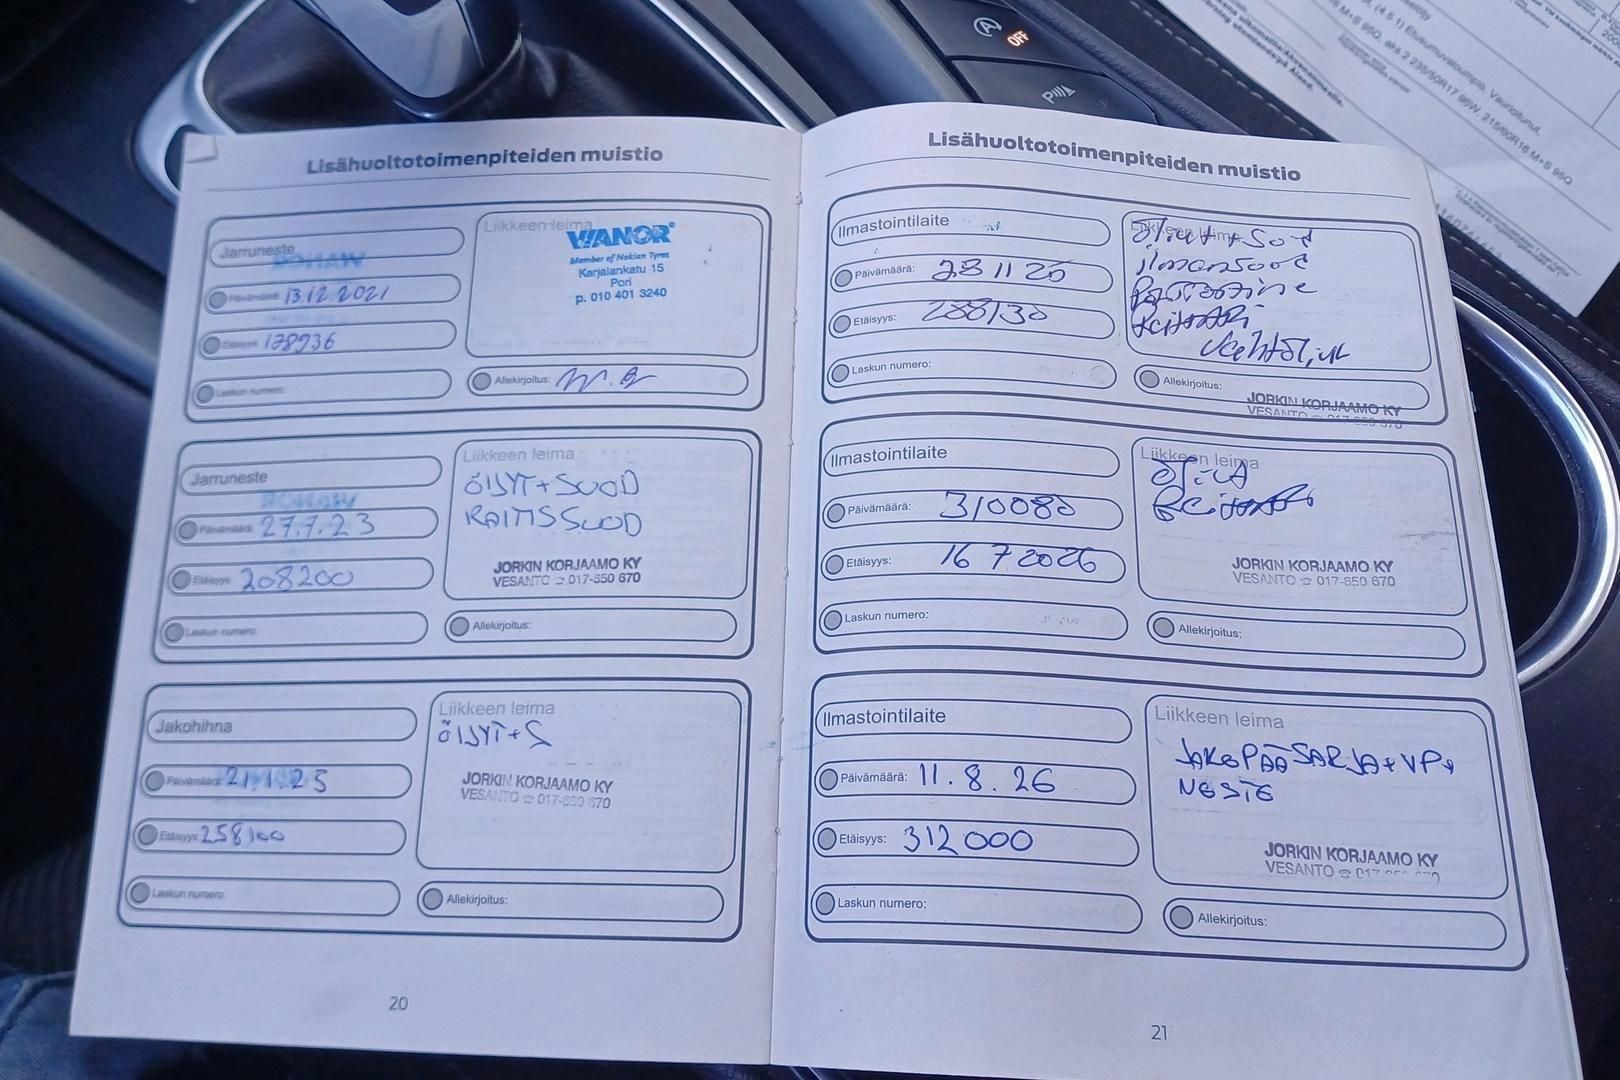 Lisähuoltotoimenpiteiden muistio
Jarruneste
Päivämäärä: 13.12.2021
Etäisyys: 178936
Laskun numero:
Liikkeen leima
WIANOR
Member of Nokian Tyres
Karjalankatu 15
Pori
p. 010 401 3240
Allekirjoitus:
Jarruneste
Päivämäärä: 27.7.23
Etäisyys: 208200
Laskun numero:
Liikkeen leima
ÖLJYT+SUOD
RAITISSUOD
JORKIN KORJAAMO KY
VESANTO ☎ 017-650 670
Allekirjoitus:
Jakohihna
Päivämäärä: 21.1.25
Etäisyys: 258100
Laskun numero:
Liikkeen leima
ÖLJYT+S
JORKIN KORJAAMO KY
VESANTO ☎ 017-650 670
Allekirjoitus:
20
Lisähuoltotoimenpiteiden muistio
Ilmastointilaite
Päivämäärä: 28 11 25
Etäisyys: 288130
Laskun numero:
Liikkeen leima
Öljyt + Sod
ilmansood
Allekirjoitus:
JORKIN KORJAAMO KY
VESANTO ☎ 017-650 670
Ilmastointilaite
Päivämäärä: 310080
Etäisyys: 16 7 2026
Laskun numero:
Liikkeen leima
JORKIN KORJAAMO KY
VESANTO ☎ 017-650 670
Allekirjoitus:
Ilmastointilaite
Päivämäärä: 11.8.26
Etäisyys: 312000
Laskun numero:
Liikkeen leima
JAKOPÄÄSARJA+VP+
NESTE
JORKIN KORJAAMO KY
VESANTO ☎ 017-650 670
Allekirjoitus:
21
OFF
P